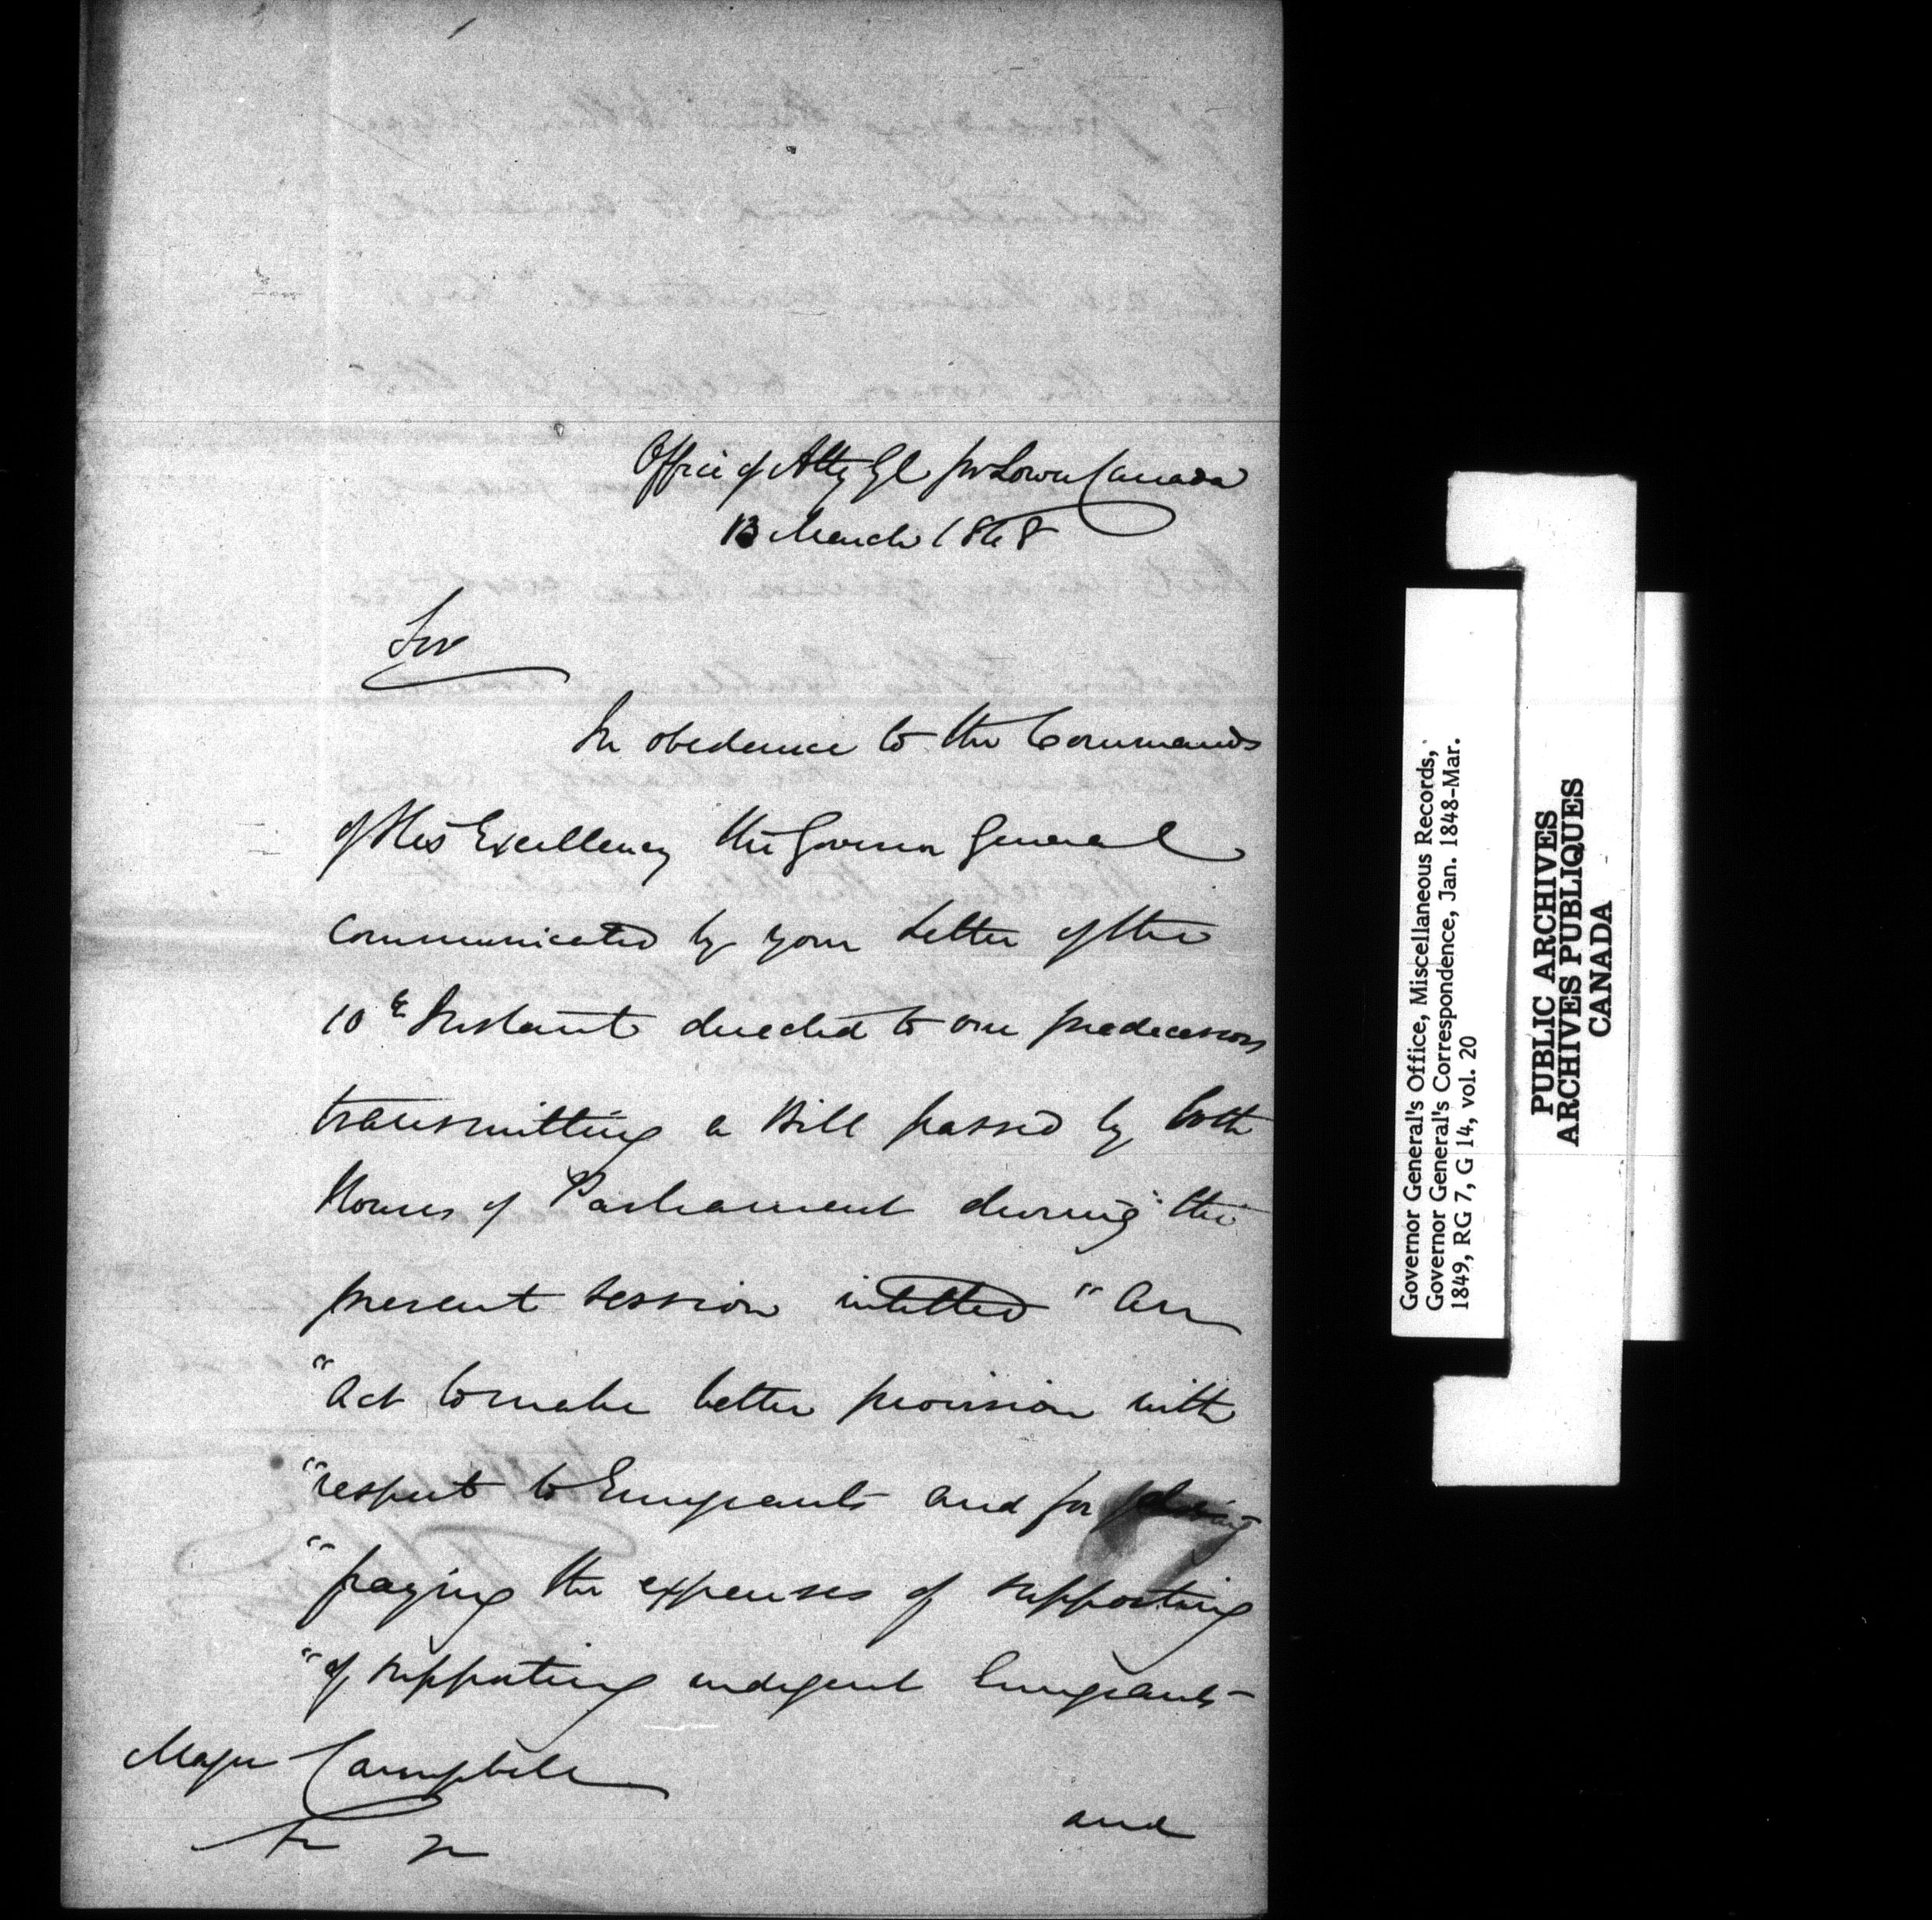 Office of Atty Gl for Lower Canada
13 March 1848
Sir
In obedience to the Commands
of His Excellency the Governor General
communicated by your letter of the
10th Instant directed to our predecessors
transmitting a Bill passed by both
Houses of Parliament during the
present Session intitled "An
"Act to make better provision with
"respect to Emigrants and for
"paying the expenses of supporting
"of supporting indigent Emigrants
Major Campbell
and
Governor General's Office, Miscellaneous Records,
Governor General's Correspondence, Jan. 1848-Mar.
1849, RG 7, G 14, vol. 20
PUBLIC ARCHIVES
ARCHIVES PUBLIQUES
CANADA